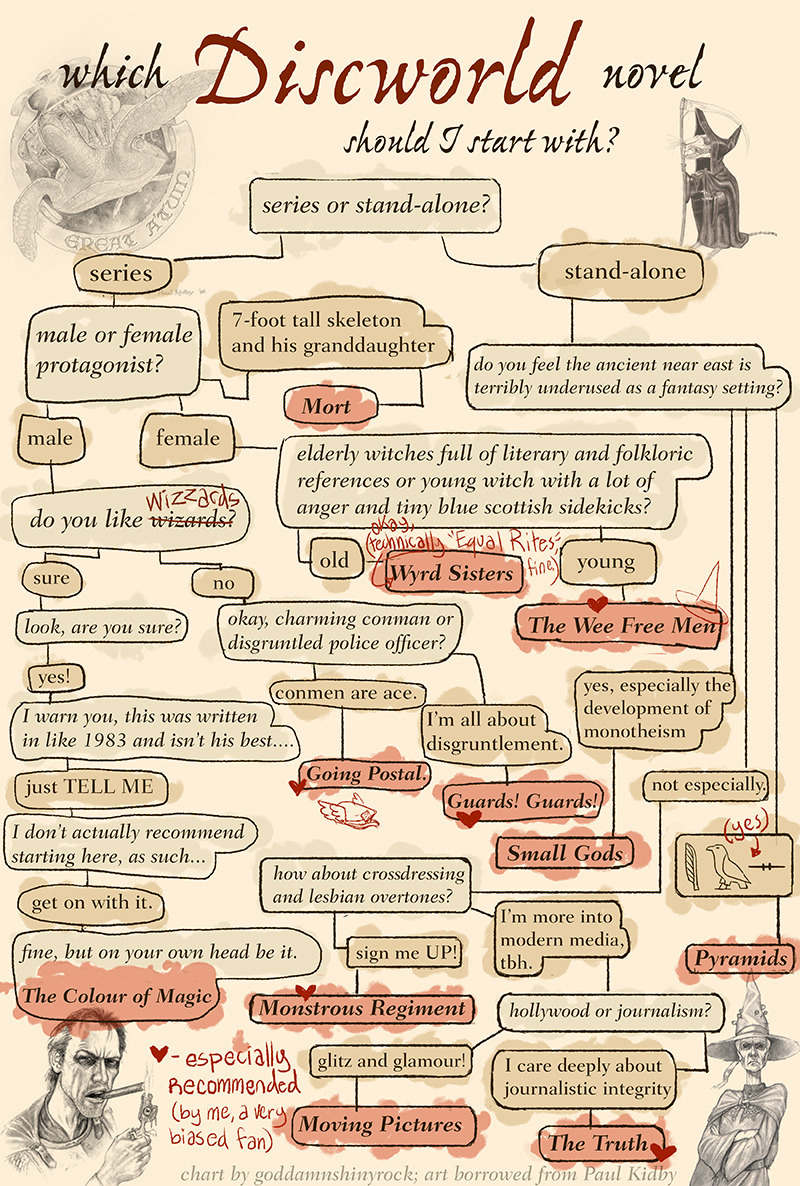 which Discworld novel
should I start with?
GREAT A'TUIN
series or stand-alone?
series
stand-alone
male or female
protagonist?
7-foot tall skeleton
and his granddaughter
Mort
do you feel the ancient near east is
terribly underused as a fantasy setting?
male
female
elderly witches full of literary and folkloric
references or young witch with a lot of
anger and tiny blue scottish sidekicks?
wizzards
do you like wizards?
old
okay,
(technically 'Equal Rites',
fine)
Wyrd Sisters
young
The Wee Free Men
sure
no
look, are you sure?
okay, charming conman or
disgruntled police officer?
yes!
conmen are ace.
I'm all about
disgruntlement.
yes, especially the
development of
monotheism
I warn you, this was written
in like 1983 and isn't his best....
Going Postal.
Guards! Guards!
not especially.
just TELL ME
Small Gods
(yes)
I don't actually recommend
starting here, as such...
how about crossdressing
and lesbian overtones?
get on with it.
I'm more into
modern media,
tbh.
sign me UP!
Pyramids
fine, but on your own head be it.
The Colour of Magic
Monstrous Regiment
hollywood or journalism?
- especially
recommended
(by me, a very
biased fan)
glitz and glamour!
I care deeply about
journalistic integrity
Moving Pictures
The Truth
chart by goddamnshinyrock; art borrowed from Paul Kidby